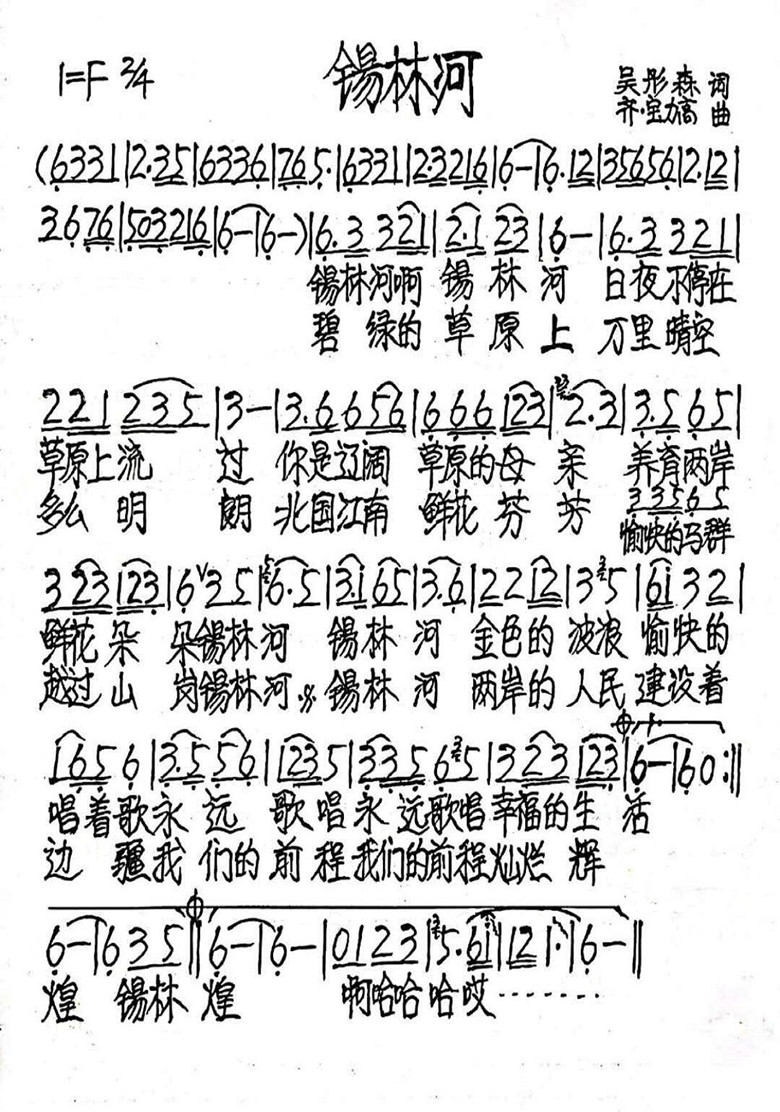 1=F 2/4
锡林河
吴彤森 词
齐·宝力高 曲
(6331|2·35|6336|765·|6331|2·3216|6-|6·12|35656|2·12|
3676|503216|6-|6-)|6·3 321|2·1 23|6-|6·3 321|
锡林河啊 锡林河 日夜不停在
碧绿的草原上 万里晴空
221 235|3-|3·6 656|666 123|2·3|3·5 65|
草原上流 过 你是辽阔 草原的母 亲 养育两岸
多么 明 朗 北国江南 鲜花 芬 芳
33565
愉快的马群
323 123|6∨35|6·5|31 65|3·6|22 12|3 5|61 321|
鲜花 朵 朵锡林河 锡林 河 金色的 波浪 愉快的
越过 山 岗锡林河 锡林 河 两岸的 人民 建设着
165 6|3·5 56|123 5|335 6 5|323 123|6-|60:||
唱着歌永 远 歌唱永 远歌唱幸福的生 活
边 疆我 们的 前 程我们的前程灿烂 辉
6-|635||6-|6-|0123|5·61|121·|6-||
煌 锡林 煌 啊哈哈哈哎········